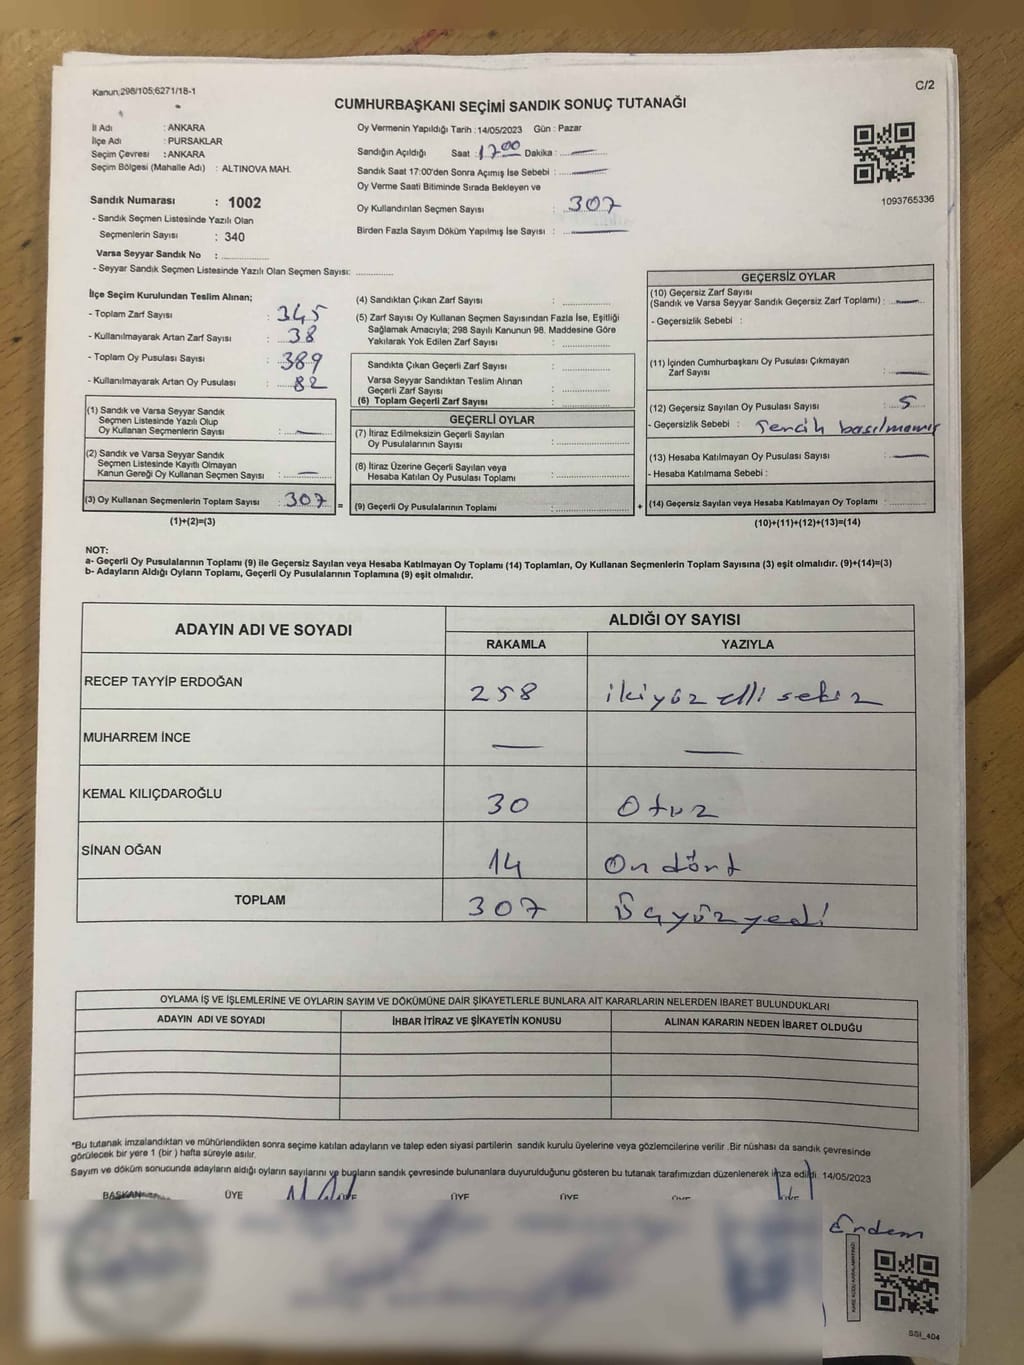 Kanun;298/105;6271/18-1
C/2
CUMHURBAŞKANI SEÇİMİ SANDIK SONUÇ TUTANAĞI
İl Adı : ANKARA
İlçe Adı : PURSAKLAR
Seçim Çevresi : ANKARA
Seçim Bölgesi (Mahalle Adı) : ALTINOVA MAH.
Oy Vermenin Yapıldığı Tarih : 14/05/2023 Gün : Pazar
Sandığın Açıldığı Saat : 17:00 Dakika :
Sandık Saat 17:00'den Sonra Açımış İse Sebebi :
Oy Verme Saati Bitiminde Sırada Bekleyen ve
Oy Kullandırılan Seçmen Sayısı : 307
Birden Fazla Sayım Döküm Yapılmış İse Sayısı :
1093765336
Sandık Numarası : 1002
- Sandık Seçmen Listesinde Yazılı Olan
Seçmenlerin Sayısı : 340
Varsa Seyyar Sandık No :
- Seyyar Sandık Seçmen Listesinde Yazılı Olan Seçmen Sayısı:
İlçe Seçim Kurulundan Teslim Alınan;
- Toplam Zarf Sayısı : 345
- Kullanılmayarak Artan Zarf Sayısı : 38
- Toplam Oy Pusulası Sayısı : 389
- Kullanılmayarak Artan Oy Pusulası : 82
(1) Sandık ve Varsa Seyyar Sandık
Seçmen Listesinde Yazılı Olup
Oy Kullanan Seçmenlerin Sayısı :
(2) Sandık ve Varsa Seyyar Sandık
Seçmen Listesinde Kayıtlı Olmayan
Kanun Gereği Oy Kullanan Seçmen Sayısı :
(3) Oy Kullanan Seçmenlerin Toplam Sayısı : 307 =
(1)+(2)=(3)
(4) Sandıktan Çıkan Zarf Sayısı :
(5) Zarf Sayısı Oy Kullanan Seçmen Sayısından Fazla İse, Eşitliği
Sağlamak Amacıyla; 298 Sayılı Kanunun 98. Maddesine Göre
Yakılarak Yok Edilen Zarf Sayısı :
Sandıkta Çıkan Geçerli Zarf Sayısı :
Varsa Seyyar Sandıktan Teslim Alınan
Geçerli Zarf Sayısı :
(6) Toplam Geçerli Zarf Sayısı :
GEÇERLİ OYLAR
(7) İtiraz Edilmeksizin Geçerli Sayılan
Oy Pusulalarının Sayısı :
(8) İtiraz Üzerine Geçerli Sayılan veya
Hesaba Katılan Oy Pusulası Toplamı :
(9) Geçerli Oy Pusulalarının Toplamı : +
GEÇERSİZ OYLAR
(10) Geçersiz Zarf Sayısı
(Sandık ve Varsa Seyyar Sandık Geçersiz Zarf Toplamı) :
- Geçersizlik Sebebi :
(11) İçinden Cumhurbaşkanı Oy Pusulası Çıkmayan
Zarf Sayısı :
(12) Geçersiz Sayılan Oy Pusulası Sayısı : 5
- Geçersizlik Sebebi : Tercih basılmamış
(13) Hesaba Katılmayan Oy Pusulası Sayısı :
- Hesaba Katılmama Sebebi :
(14) Geçersiz Sayılan veya Hesaba Katılmayan Oy Toplamı :
(10)+(11)+(12)+(13)=(14)
NOT:
a- Geçerli Oy Pusulalarının Toplamı (9) ile Geçersiz Sayılan veya Hesaba Katılmayan Oy Toplamı (14) Toplamları, Oy Kullanan Seçmenlerin Toplam Sayısına (3) eşit olmalıdır. (9)+(14)=(3)
b- Adayların Aldığı Oyların Toplamı, Geçerli Oy Pusulalarının Toplamına (9) eşit olmalıdır.
ADAYIN ADI VE SOYADI
ALDIĞI OY SAYISI
RAKAMLA YAZIYLA
RECEP TAYYİP ERDOĞAN 258 ikiyüz elli sekiz
MUHARREM İNCE
KEMAL KILIÇDAROĞLU 30 Otuz
SİNAN OĞAN 14 On dört
TOPLAM 307 Üçyüzyedi
OYLAMA İŞ VE İŞLEMLERİNE VE OYLARIN SAYIM VE DÖKÜMÜNE DAİR ŞİKAYETLERLE BUNLARA AİT KARARLARIN NELERDEN İBARET BULUNDUKLARI
ADAYIN ADI VE SOYADI İHBAR İTİRAZ VE ŞİKAYETİN KONUSU ALINAN KARARIN NEDEN İBARET OLDUĞU
*Bu tutanak imzalandıktan ve mühürlendikten sonra seçime katılan adayların ve talep eden siyasi partilerin sandık kurulu üyelerine veya gözlemcilerine verilir .Bir nüshası da sandık çevresinde
görülecek bir yere 1 (bir ) hafta süreyle asılır.
Sayım ve döküm sonucunda adayların aldığı oyların sayılarını ve bunların sandık çevresinde bulunanlara duyurulduğunu gösteren bu tutanak tarafımızdan düzenlenerek imza edildi. 14/05/2023
BAŞKAN ÜYE ÜYE ÜYE ÜYE ÜYE
Erdem
SSI_404